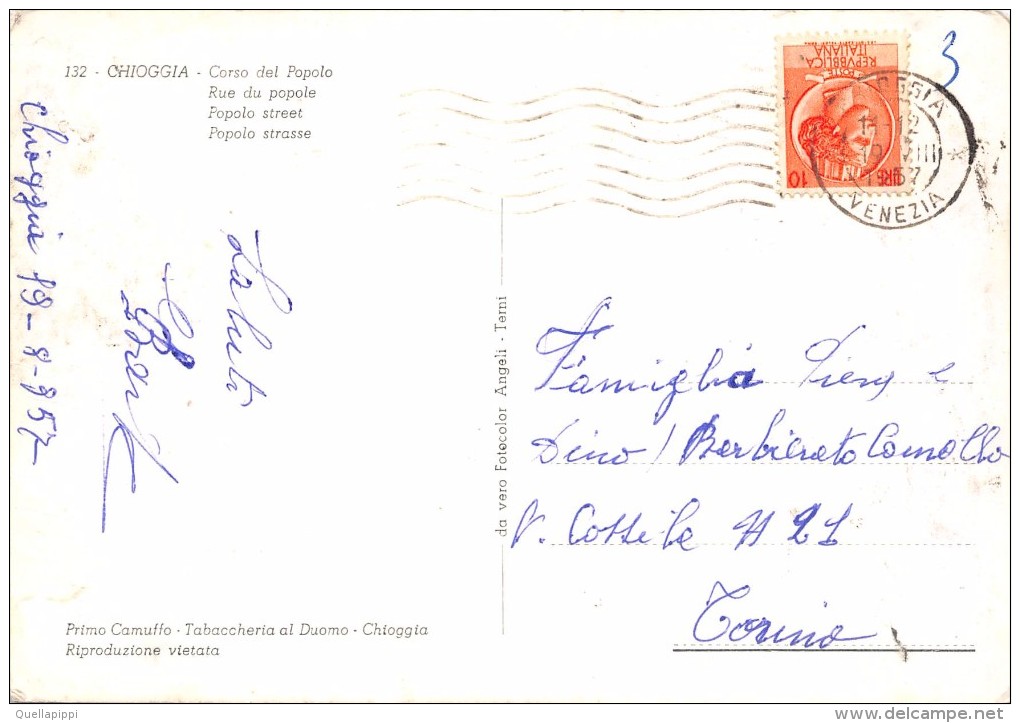 132 - CHIOGGIA - Corso del Popolo
Rue du popole
Popolo street
Popolo strasse
Chioggia 19-8-957
Saluti
da vero Fotocolor Angeli - Terni
REPVBBLICA
ITALIANA
POSTE
LIRE 10
11-12
19 VIII
VENEZIA
3
Famiglia e
Dino / Barbierato
V. 21
Torino
Primo Camuffo - Tabaccheria al Duomo - Chioggia
Riproduzione vietata
Quellapippi
delcampe.net